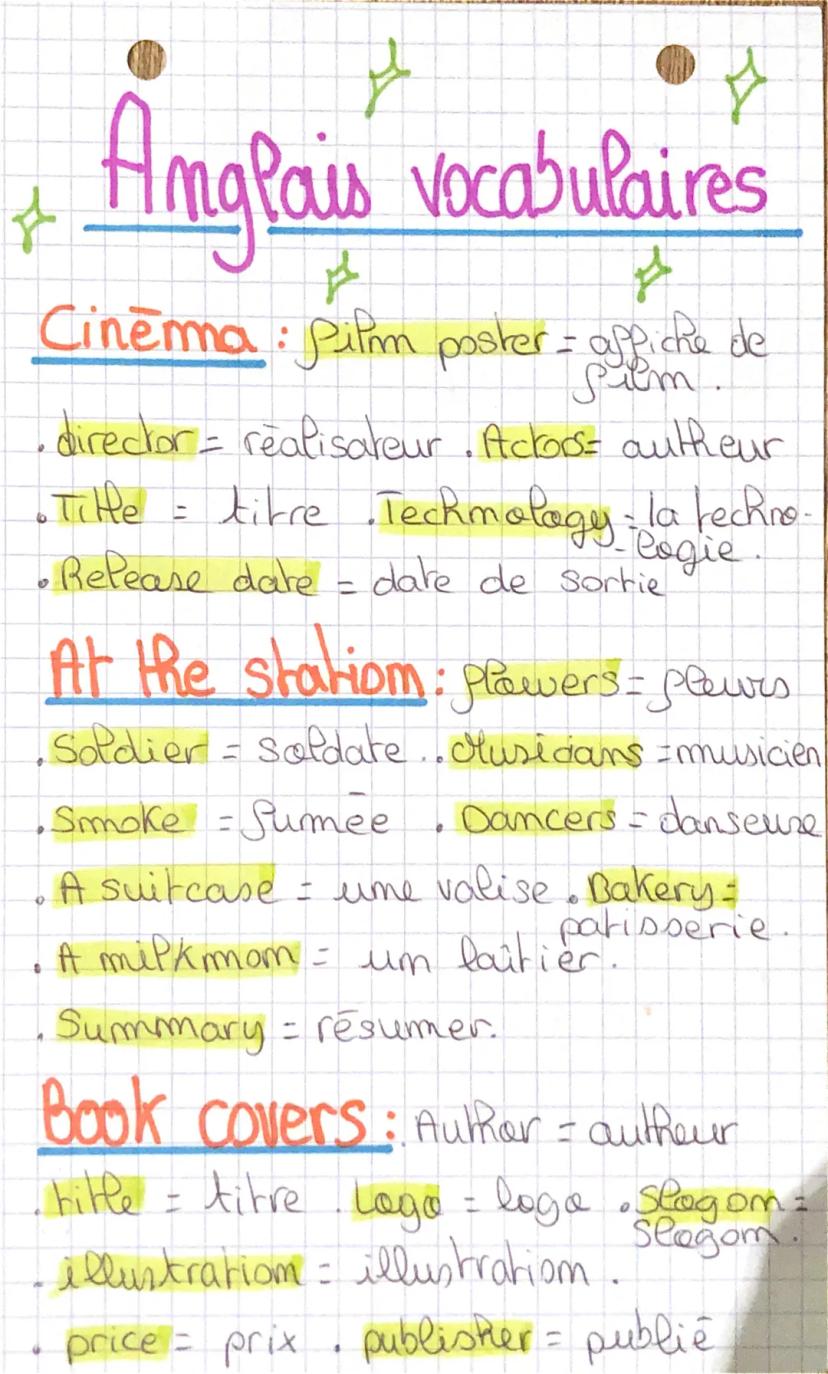 Anglais vocabulaires
Cinéma : film poster = affiche de
film .
. director = réalisateur . Actors = autheur
. Title = titre . Technology = la techno-
-logie .
. Release date = date de sortie
At the station : flowers = fleurs
. Soldier = soldate . . Musicians = musicien
. Smoke = fumée . Dancers = danseuse
. A suitcase = une valise . Bakery =
patisserie .
. A milkman = un laîtier .
. Summary = résumer.
Book covers : . Author = autheur
. title = titre . Logo = logo . Slogan =
Slogan .
. illustration = illustration .
. price = prix . publisher = publié